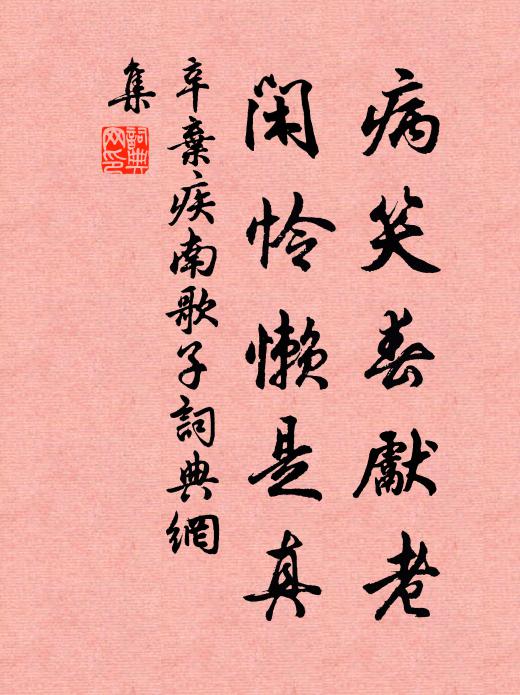 病笑春獻老
閑怜懒是真
辛棄疾南歌子詞典網
集
詞典網印